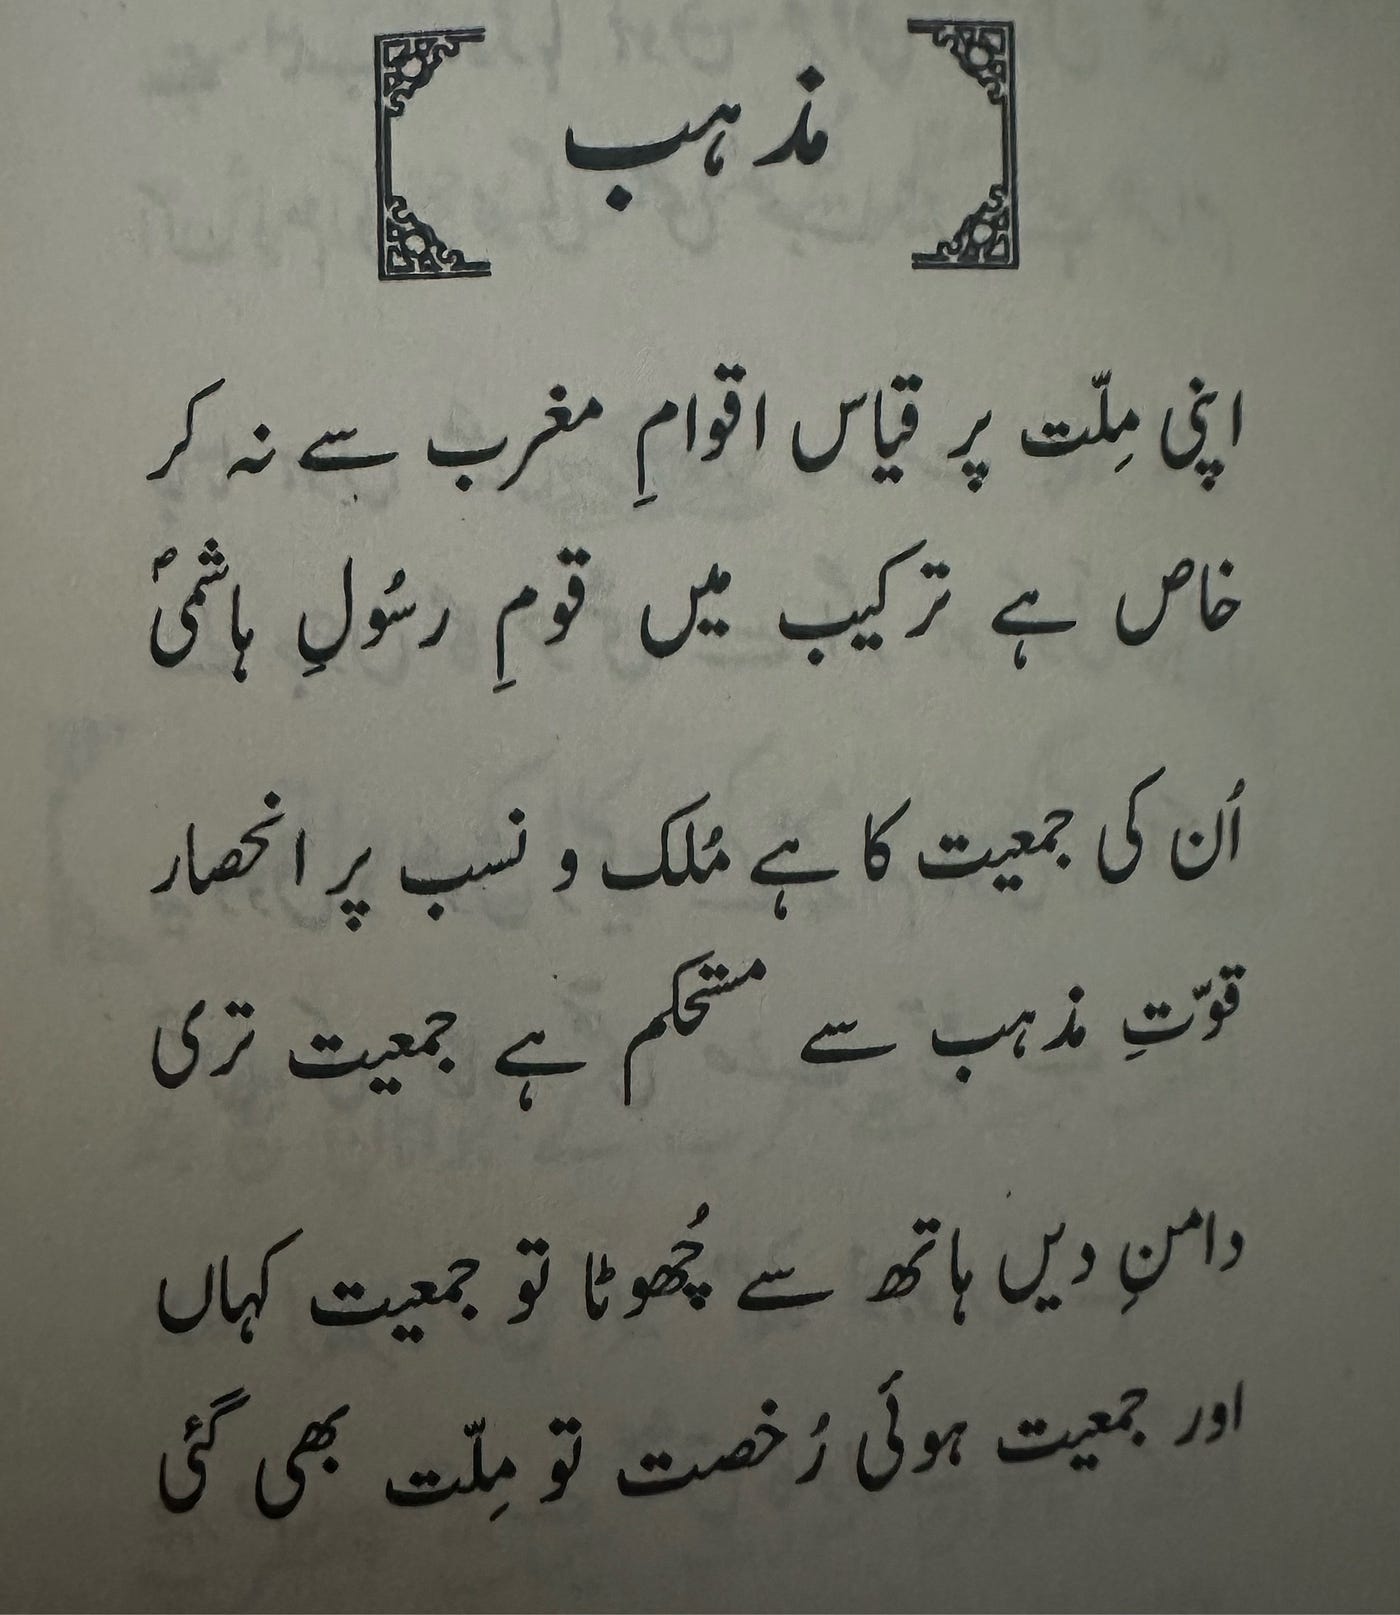 مذہب
اپنی مِلّت پر قیاس اقوامِ مغرب سے نہ کر
خاص ہے ترکیب میں قومِ رسُولِ ہاشمیؐ
اُن کی جمعیت کا ہے مُلک و نسب پر انحصار
قوّتِ مذہب سے مستحکم ہے جمعیت تری
دامنِ دیں ہاتھ سے چُھوٹا تو جمعیت کہاں
اور جمعیت ہوئی رُخصت تو مِلّت بھی گئی